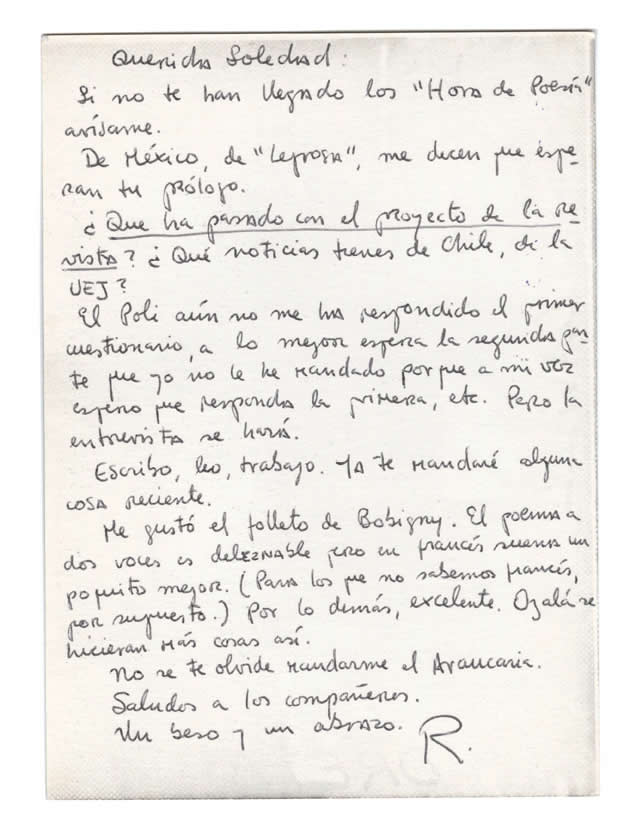 Querida Soledad:
Si no te han llegado los "Hora de Poesía"
avísame.
De México, de "Leprosa", me dicen que espe-
ran tu prólogo.
¿Que ha pasado con el proyecto de la re-
vista? ¿Qué noticias tienes de Chile, de la
UEJ?
El Poli aún no me ha respondido el primer
cuestionario, a lo mejor espera la segunda par-
te que yo no le he mandado porque a mi vez
espero que responda la primera, etc. Pero la
entrevista se hará.
Escribo, leo, trabajo. Ya te mandaré alguna
cosa reciente.
Me gustó el folleto de Bobigny. El poema a
dos voces es deleznable pero en francés suena un
poquito mejor. (Para los que no sabemos francés,
por supuesto.) Por lo demás, excelente. Ojalá se
hicieran más cosas así.
No se te olvide mandarme el Araucaria.
Saludos a los compañeros.
Un beso y un abrazo. R.